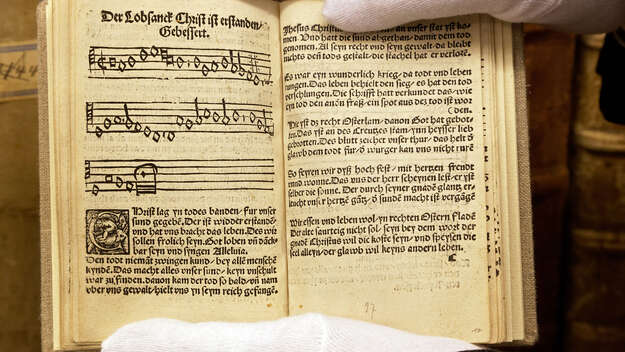 Der Lobsanck Christ ist erstanden/
Gebessert.
CHrist lag yn todes banden/ fur unser
sund gegebē. Der ist widder erstandē
und hat uns bracht das leben. Des wir
sollen frolich seyn. Got loben uñ dāck
bar seyn und syngen Alleluia.
Den tod niemāt zwingen kund/ bey allē menschē
kyndē. Das macht alles unser sund/ keyn unschult
war zu finden. danon kam der tod so bald/ uñ nam
uber uns gewalt/ hielt uns yn seym reich gefangē.
Jhesus Christus an unser stat yst ko
men. Und hatt die sund abgethan/ damit dem tod
genomen. Al seyn recht und seyn gewalt/ da bleibt
nichts den tods gestalt/ die stachel hat er verlorē.
Es war eyn wunderlich krieg/ da tod und leben
rungen. Das leben behielt den sieg/ es hat den tod
verschlungen. Die schrifft hatt verkundet das/ wie
eyn tod den andn fraß/ ein spot aus dez tod ist wor
(den.
Die yst dz recht Osterlam/ danon Got hat gebot
ten. Das yst an des Creutzes stam/ yn heysser lieb
gebrotten. Des blutt zeychnt unser thur/ das helt d̄
glawb dem todt fur/ d̄ wurger kan uns nicht rurē
So feyren wir dyß hoch fest/ mit hertzen frendt
und wonne. Das uns der herr scheynen lest/ er yst
selber die sonne. Der durch seyner gnadē glantz er
leicht unser hertzē gātz/ d̄ sundē macht ist vergāgē
Wir essen und leben wol/ yn rechten Ostern fladē
Der alte saurteig nicht sol/ seyn bey dem wort der
gnadē Christus wil die koste seyn/ und speysen die
seel alleyn/ der glawb wil keyns andern leben.
37